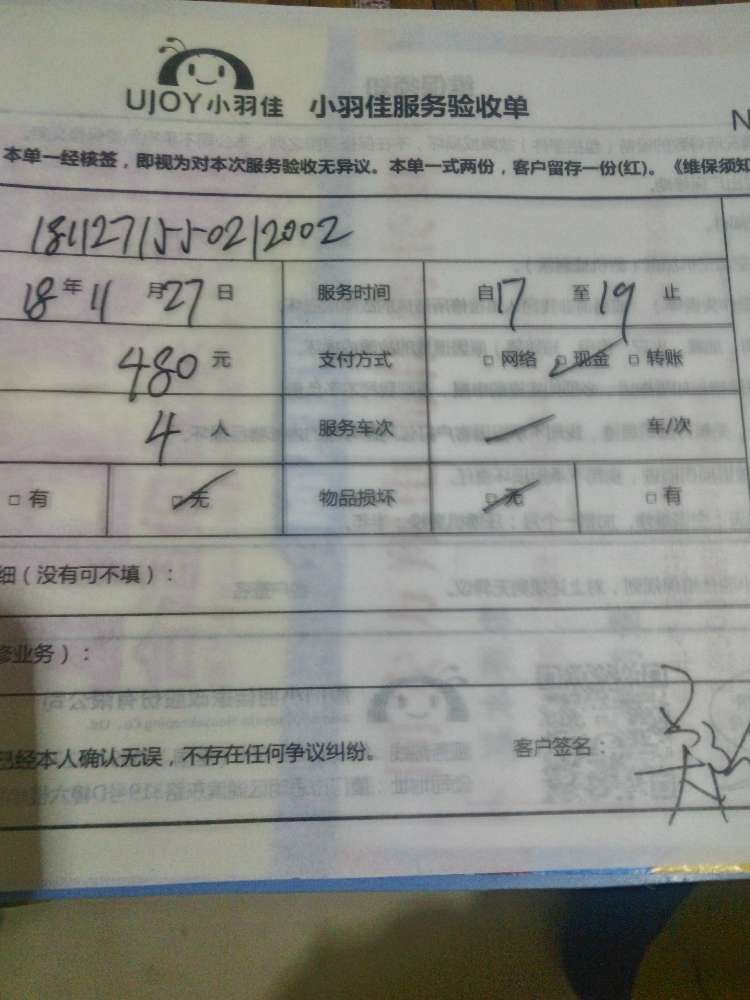 UJOY小羽佳 小羽佳服务验收单
N
本单一经核签，即视为对本次服务验收无异议。本单一式两份，客户留存一份(红)。《维保须知
1811271550212002
18年11月27日 服务时间 自17至19止
480元 支付方式 □网络 □现金 □转账
4人 服务车次 车/次
□有 □无 物品损坏 □无 □有
细（没有可不填）：
修业务）：
已经本人确认无误，不存在任何争议纠纷。 客户签名：